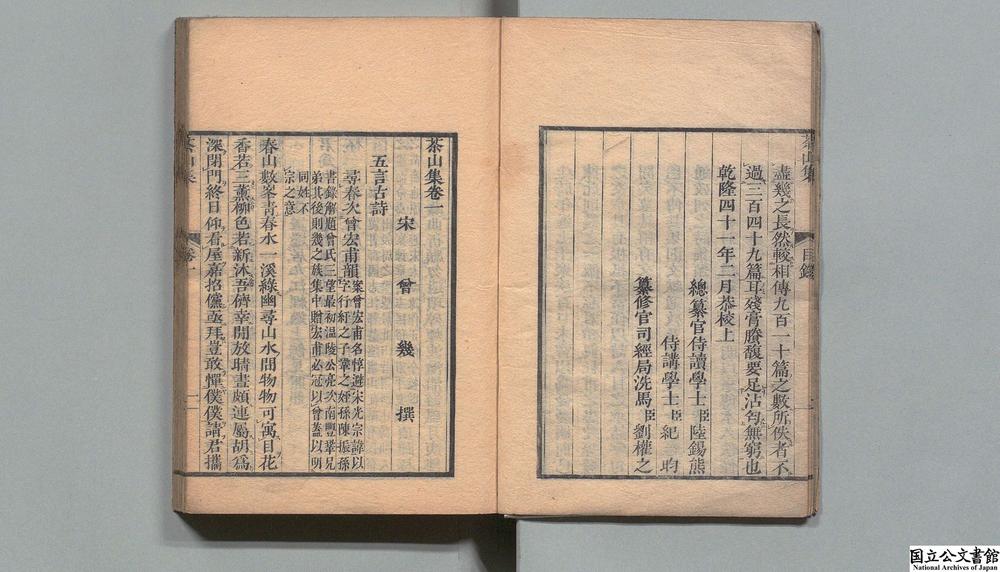 茶山集
目錄
盡幾之長然較相傳九百一十篇之數所佚者不
過三百四十九篇耳殘膏賸馥要足沾匄無窮也
乾隆四十一年二月恭校上
總纂官侍讀學士臣陸錫熊
侍講學士臣紀昀
纂修官司經局洗馬臣劉權之
茶山集卷一
宋 曾 幾 撰
五言古詩
尋春次曾宏甫韻
案曾宏甫名惇避宋光宗諱以
字行紆之子鞏之姪孫陳振孫
書錄解題曾氏三望最初温陵公亮次南豐鞏兄
弟其後則幾之族集中贈宏甫必冠以曾蓋以明
同姓不
宗之意
春山數峯青春水一溪綠幽尋山水間物物可寓目花
香若三薰柳色若新沐吾儕幸閒放晴晝頗連屬胡為
深閉門終日仰看屋嘉招儻亟拜豈敢憚僕僕請君攜
茶山集
卷一
一
国立公文書館
National Archives of Japan